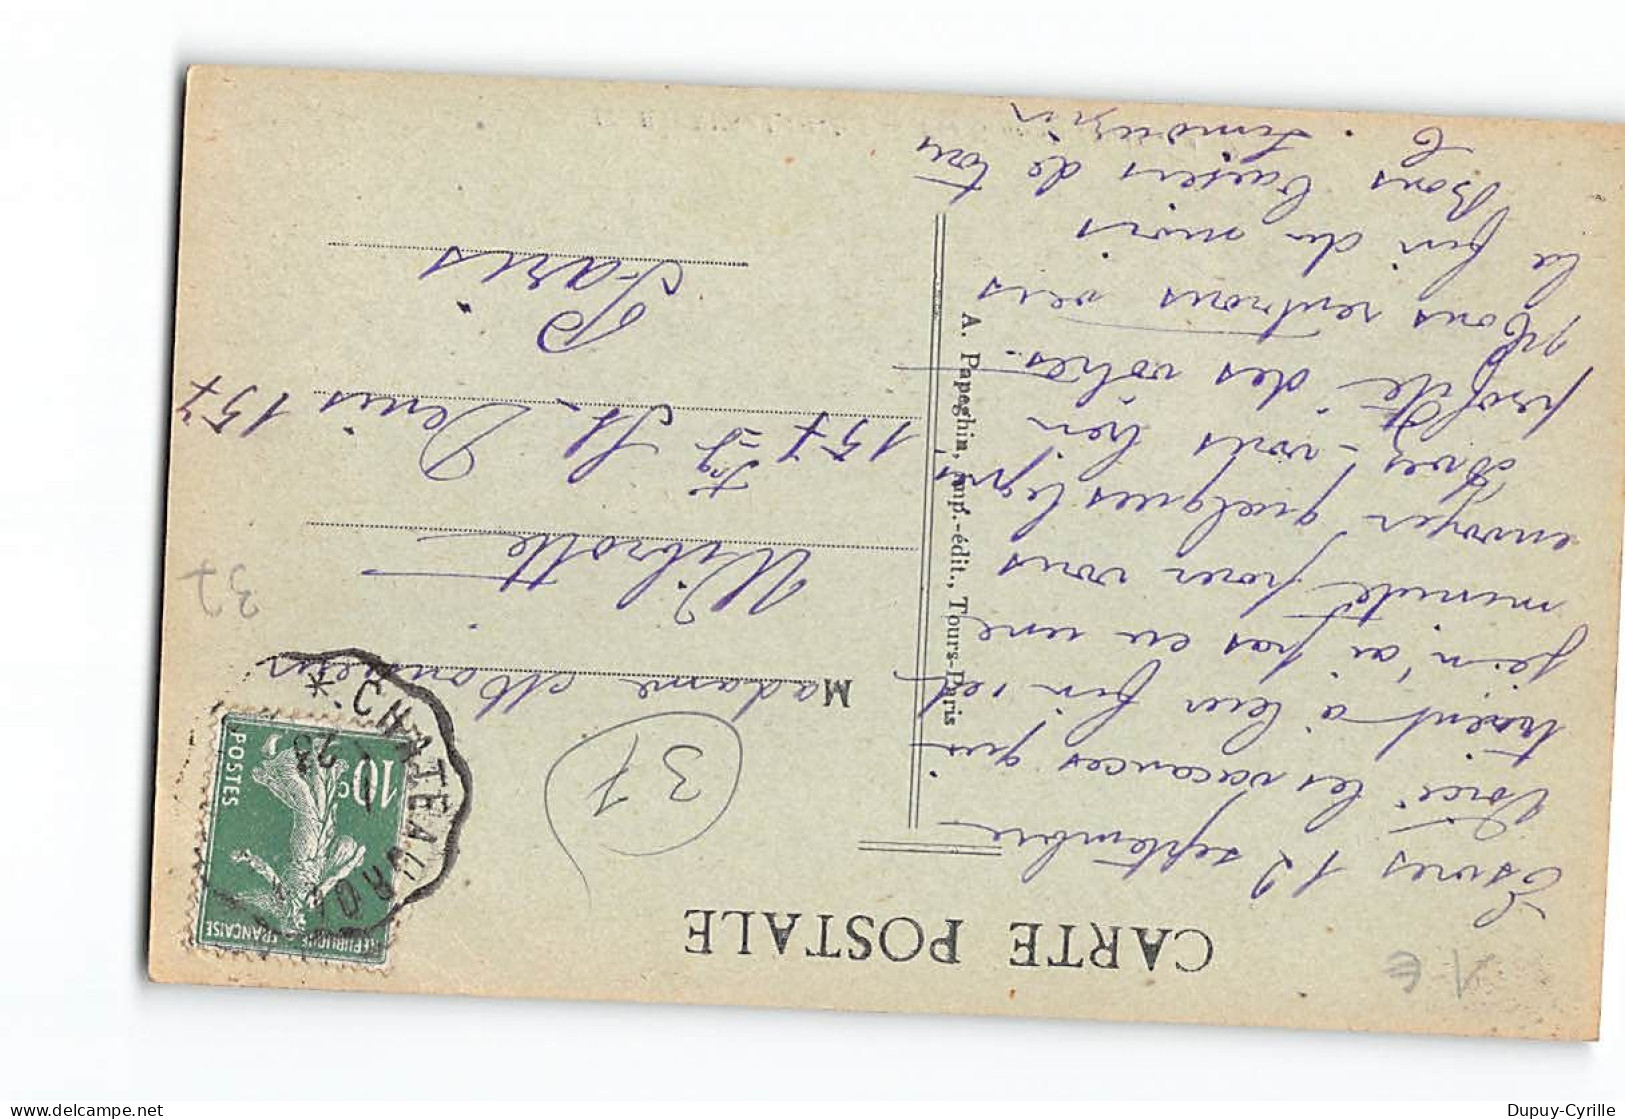 CARTE POSTALE
Esvres 12 septembre
Voici les vacances qui
tirent à leur fin et
je n'ai pas eu une
minute pour vous
envoyer quelques lignes
Avez-vous bien
profité des vôtres.
Nous rentrons vers
la fin du mois
Bons baisers de tous
Limouzin
A. Papeghin, imp.-édit., Tours-Paris
Madame et Monsieur
Wibrotte
157 Fg St-Denis 157
Paris
37
37
1 €
POSTES
10c
RÉPUBLIQUE
FRANÇAISE
CHATEAUROUX
28
Dupuy-Cyrille